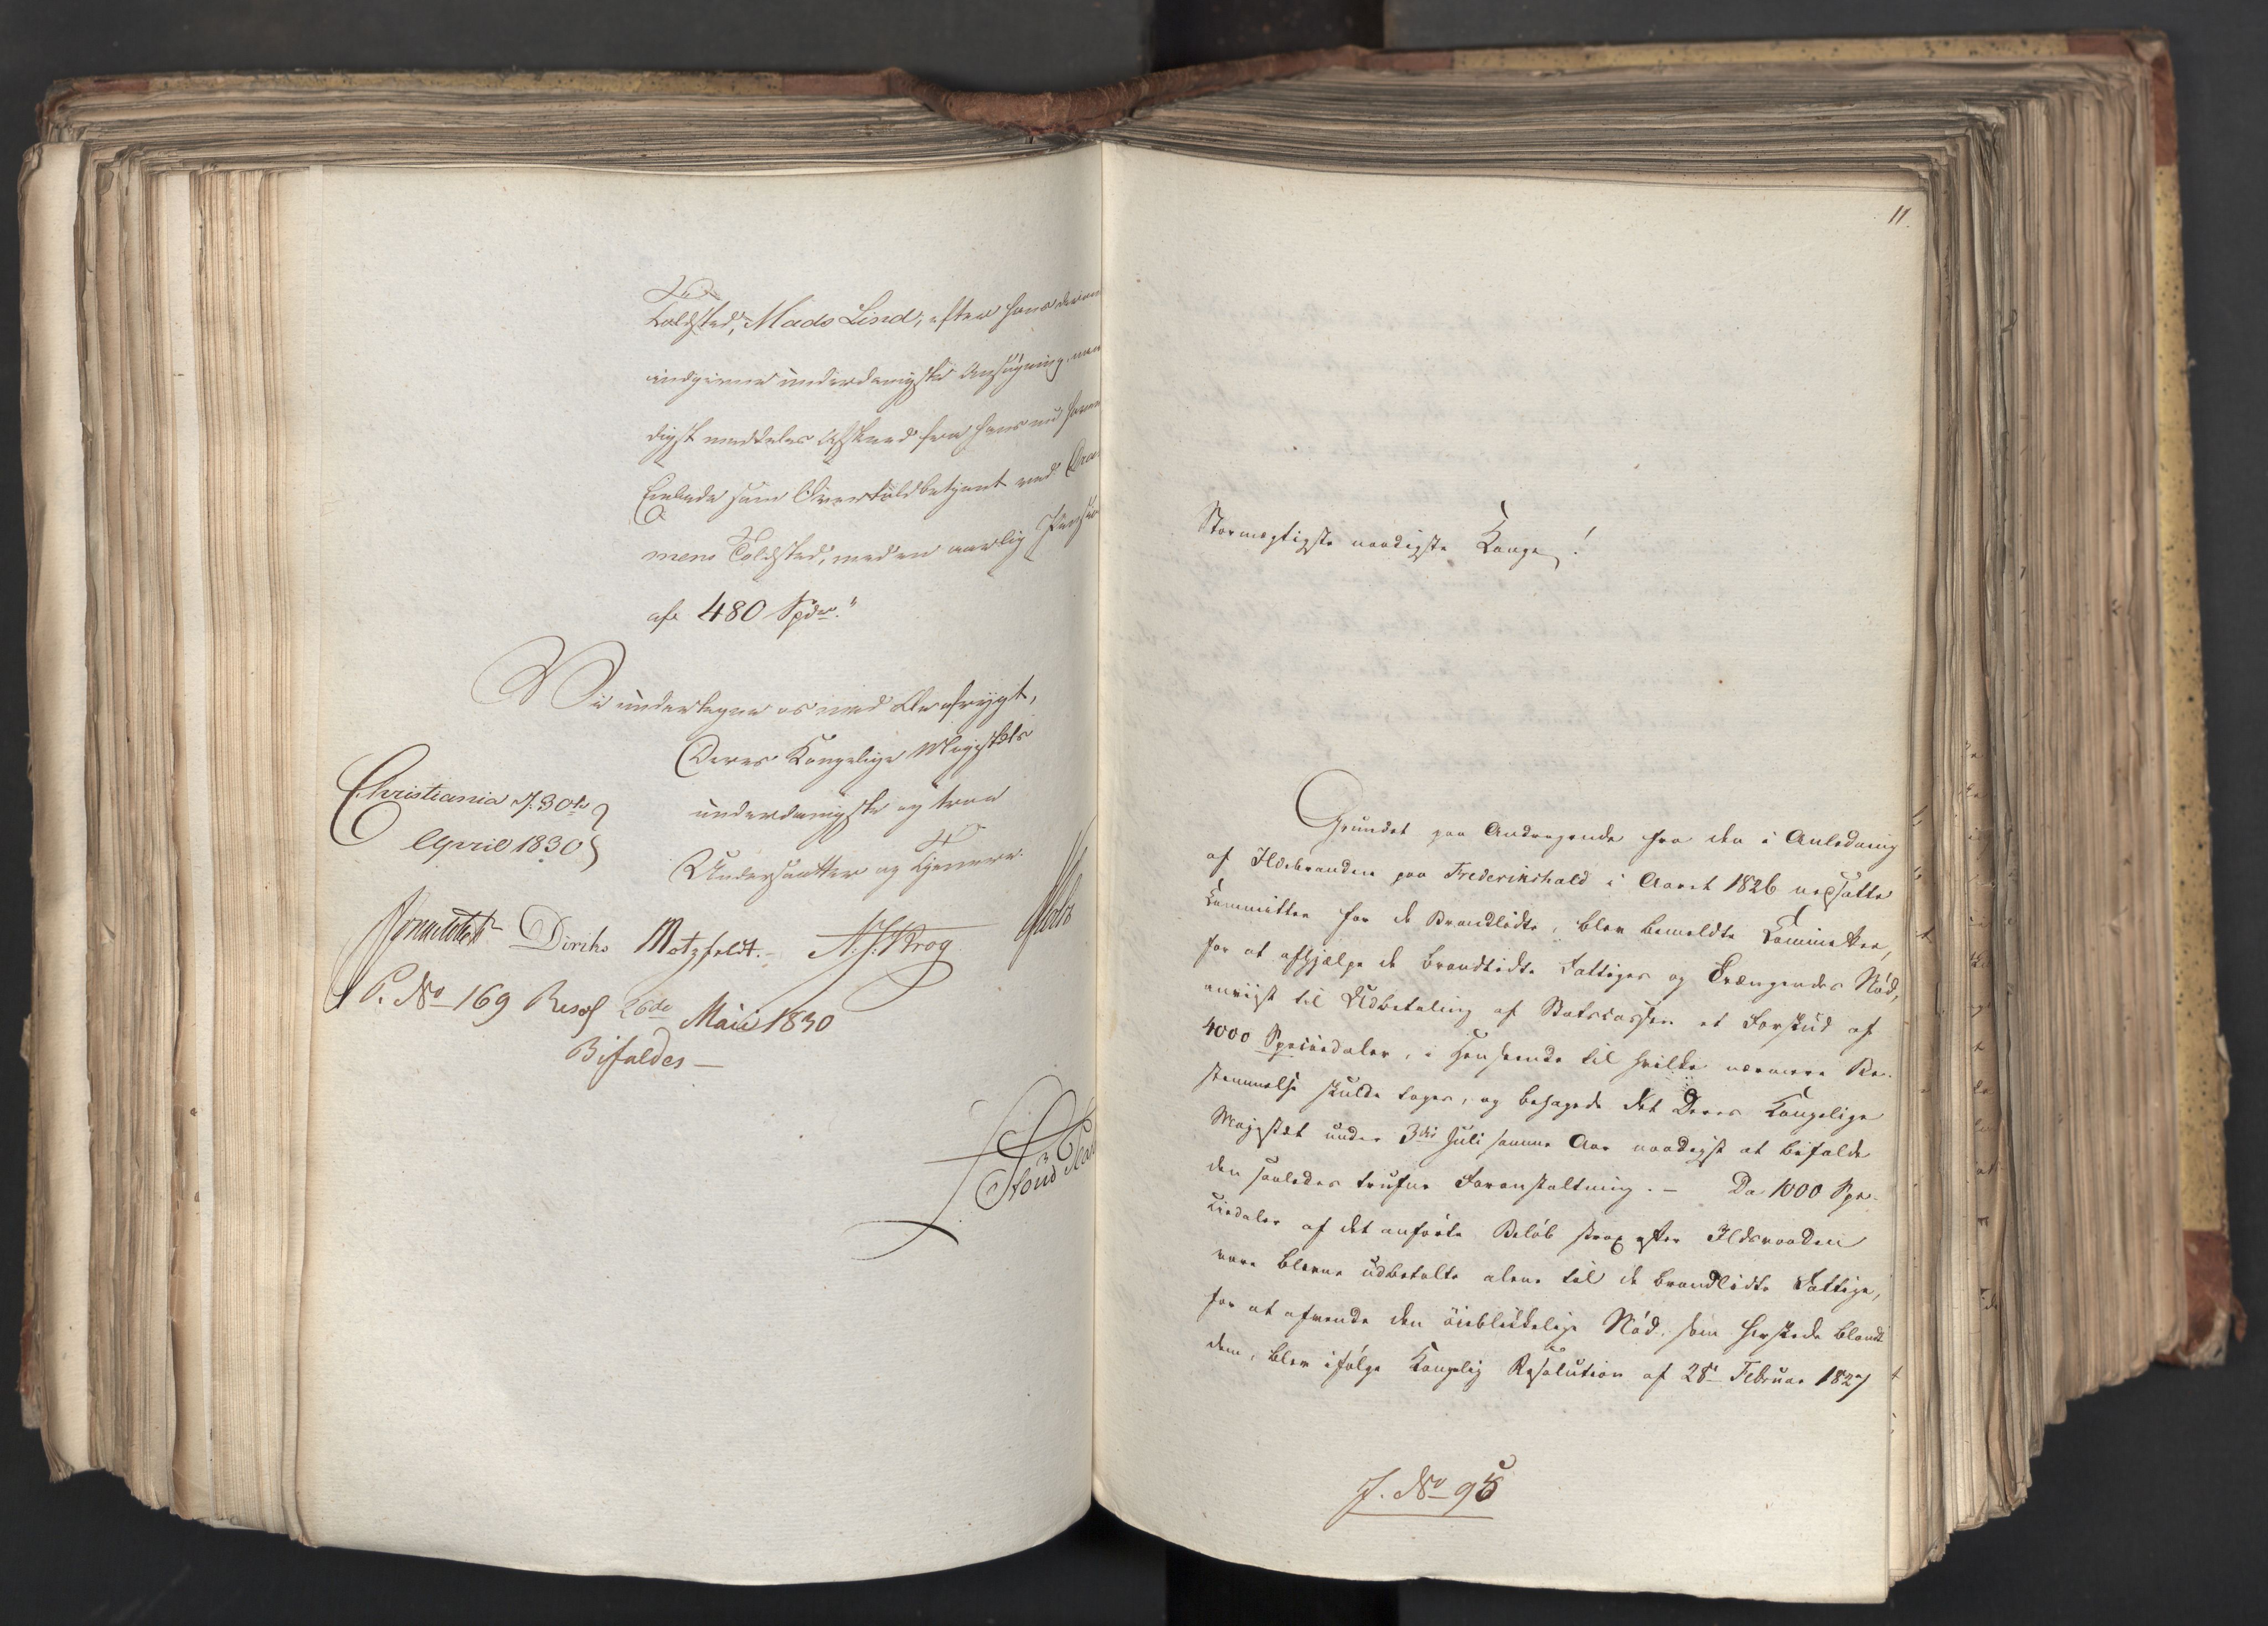 Toldsted, Mads Lind, efter hans derom
indgivne underdanigste Ansøgning, naa
digst meddeles Afsked fra hans nu havende
Embede som Overtoldbetjent ved Dram
mens Toldsted, med en aarlig Pension
af 480 Spdr."
Vi undertegne os med Ærefrygt,
Deres Kongelige Majestæts
underdanigste og troe
Undersaatter og Tjenere.
Christiania d. 30te
April 1830
Diriks Motzfeldt. Krog Holst
P. No 169 Resol Maii 1830
Bifaldes
11.
Stormægtigste naadigste Konge!
Grundet paa Andragende fra den i Anledning
af Ildebranden paa Frederikshald i Aaret 1826 nedsatte
Committee for de Brandlidte, blev bemeldte Committee,
for at afhjælpe de brandlidte Fattiges og Trængendes Nød,
anviist til Udbetaling af Statscassen et Forskud af
4000 Speciedaler, i Henseende til hvilke nærmere Be-
stemmelse skulde tages, og behagede det Deres Kongelige
Majestæt under 3die Juli samme Aar naadigst at bifalde
den saaledes trufne Foranstaltning. – Da 1000 Spe-
ciedaler af det anførte Beløb strax efter Ildsvaaden
vare blevne udbetalte alene til de brandlidte Fattige,
for at afvende den øieblikkelige Nød, som herskede blandt
dem, blev ifølge Kongelig Resolution af 28de Februar 1827
J. No 95